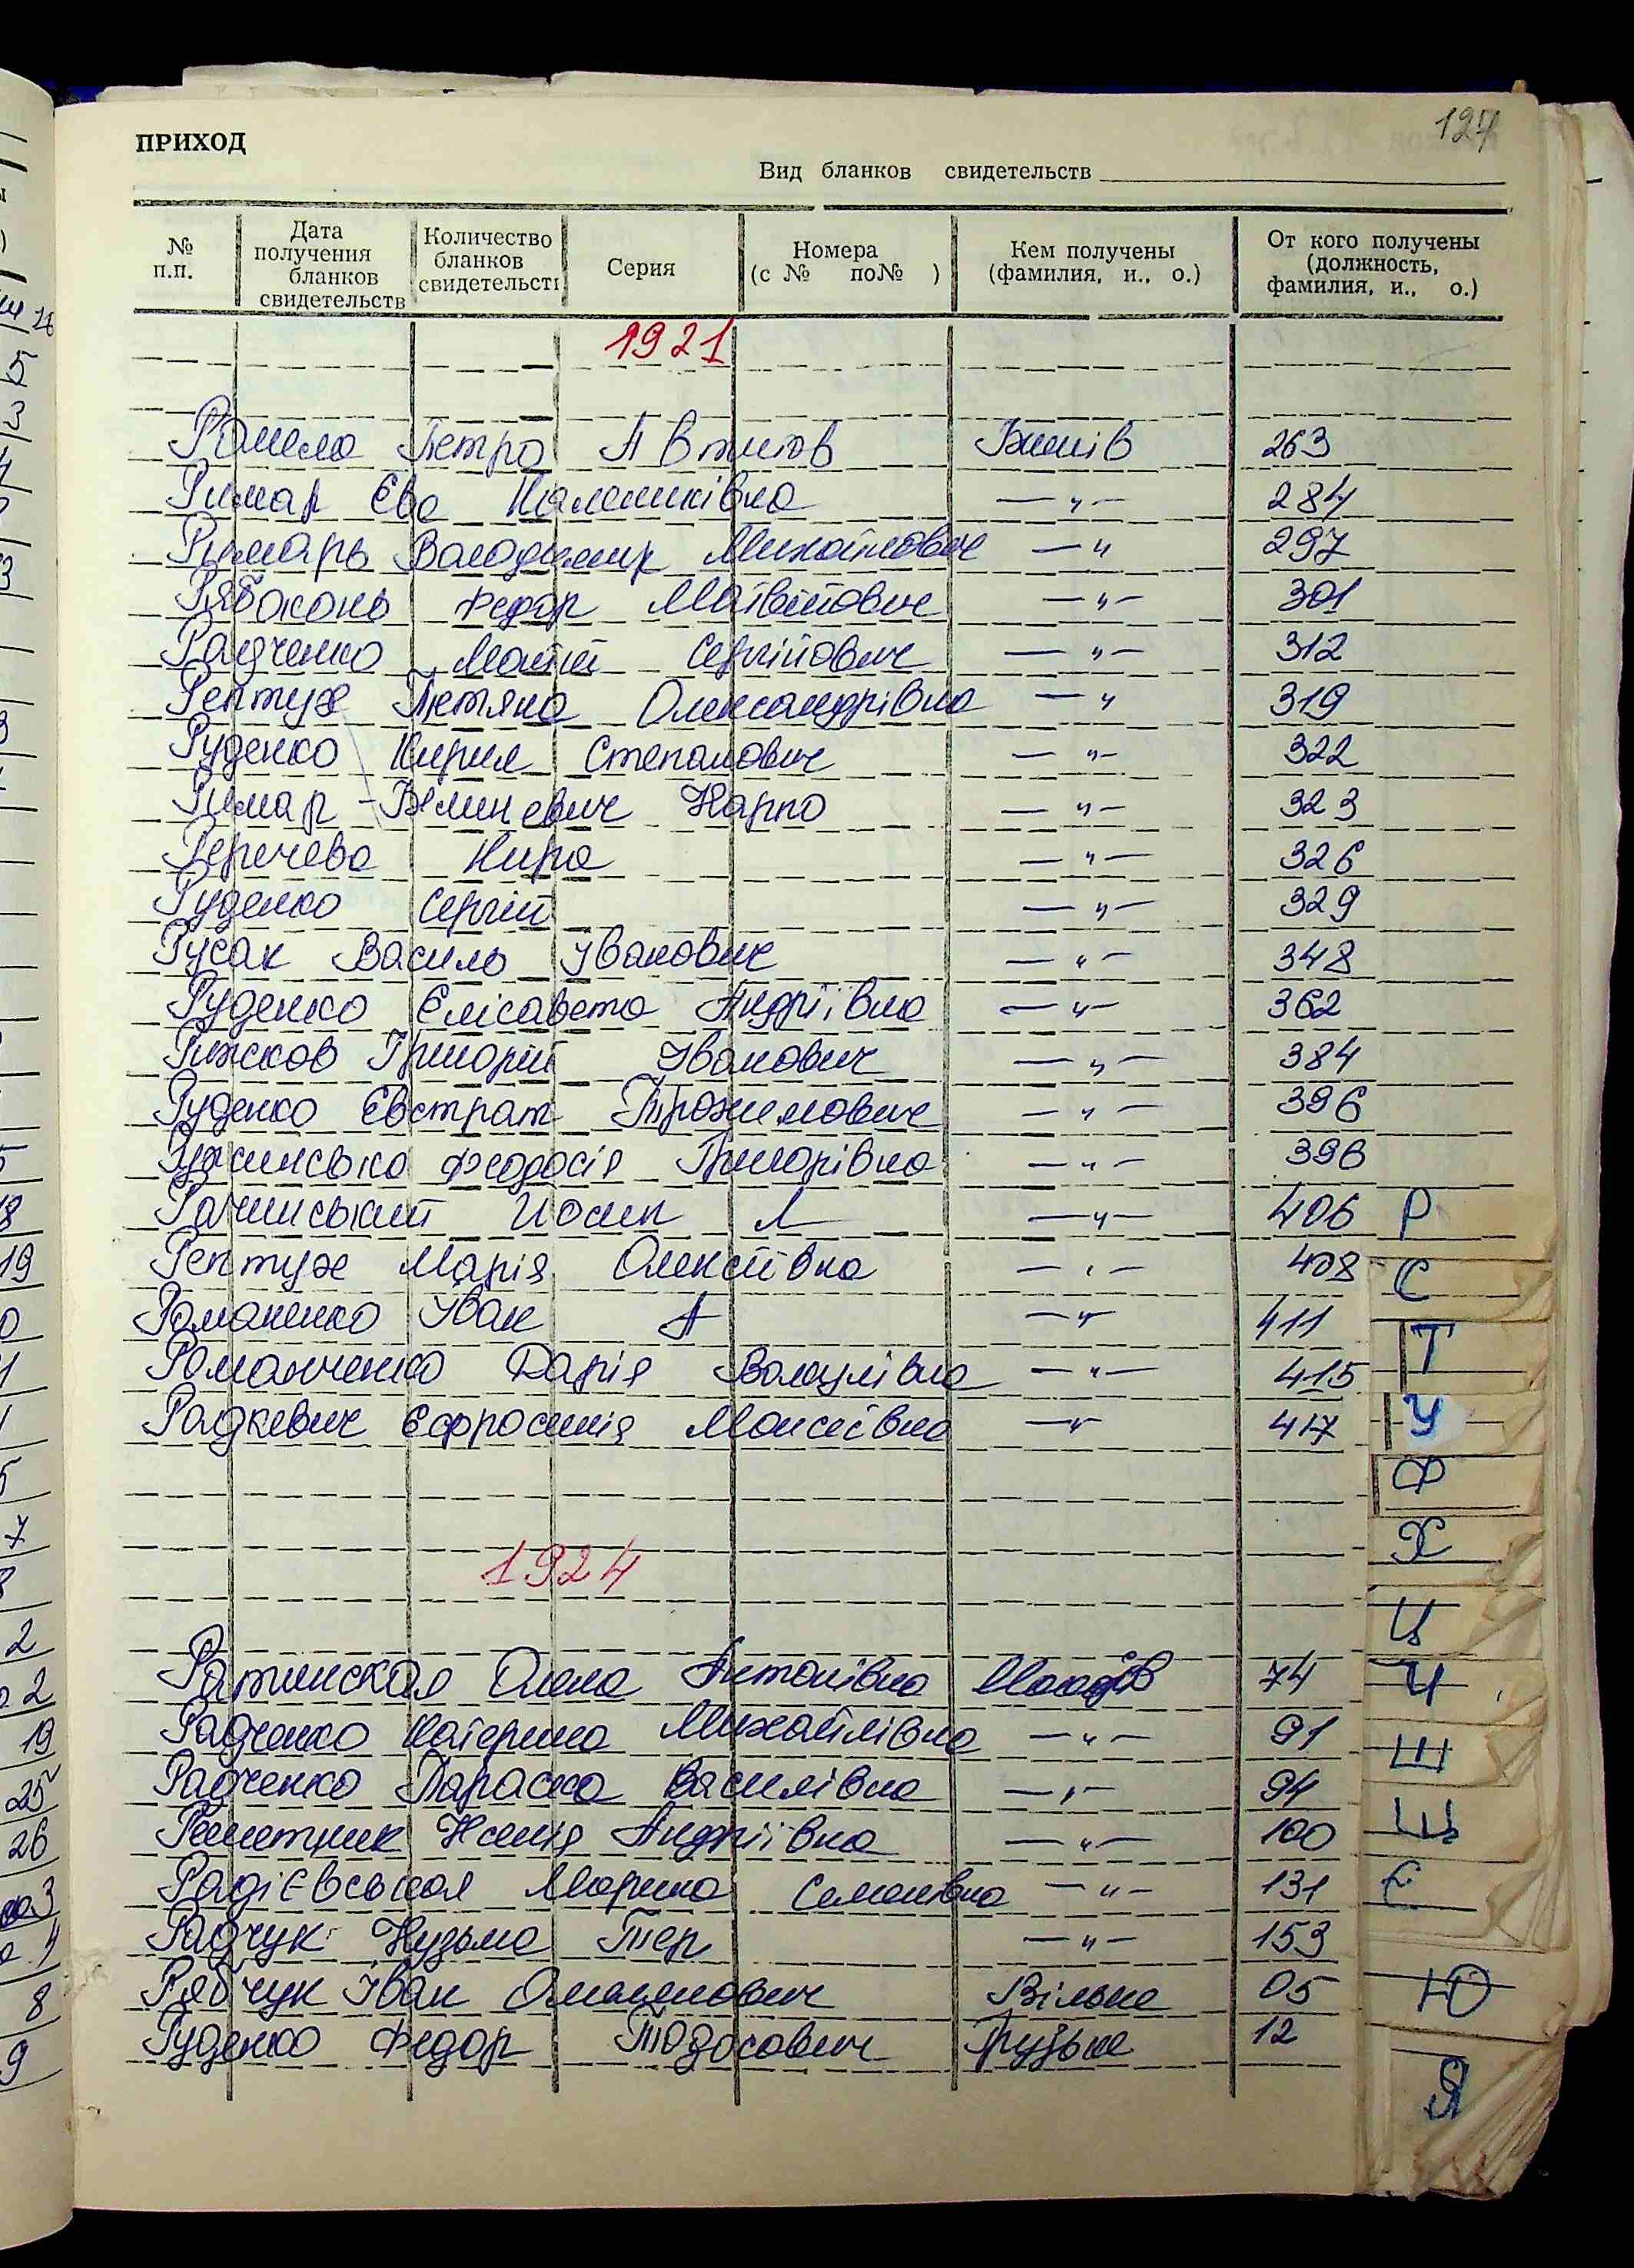 127
ПРИХОД
Вид бланков свидетельств
№ п.п. Дата получения бланков свидетельств Количество бланков свидетельств Серия Номера (с № по№ ) Кем получены (фамилия, и., о.) От кого получены (должность, фамилия, и., о.)
1921
Петро 263
Римар Єва —„— 284
Римарь Володимир Михайлович —„ 297
Рябоконь Федор Матвійович —„— 301
Радченко Сергійович —„— 312
Рептух Тетяна Олександрівна —„ 319
Руденко Кирил Степанович —„— 322
Римар - Карпо —„— 323
Кира —„— 326
Руденко Сергій —„— 329
Русак Василь Іванович —„— 348
Руденко Єлісавета Андріївна —„— 362
Рижков Григорій Іванович —„— 384
Руденко Євстрат Трохимович —„— 396
Феодосія Григорівна —„— 396
Рачинський Йосип Л —„— 406
Рептух Марія Олексіївна —„— 408
Романенко Іван А —„ 411
Романченко Дарія —„— 415
Радкевич Єфросинія Моисеївна —„ 417
1924
Ратинская Олена Антонівна 74
Радченко Катерина Михайлівна —„— 91
Радченко Параска Василівна —„— 94
Решетник Ксенія Андріївна —„— 100
Радієвськая Марина Семенівна —„— 131
Радчук Кузьма Тер —„— 153
Рябчук Іван Вільне 05
Руденко Федор Тодосович Грузьке 12
Р
С
Т
У
Ф
Х
Ц
Ч
Ш
Щ
Є
Ю
Я